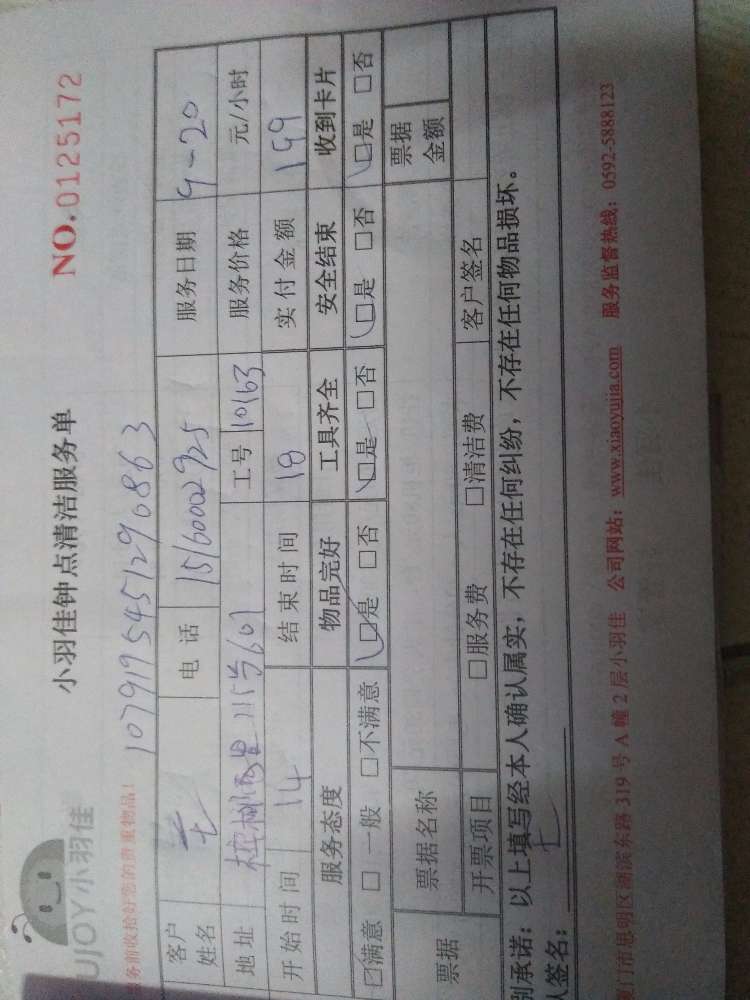 UJOY小羽佳
小羽佳钟点清洁服务单
NO.0125172
务前收拾好您的贵重物品!
1079195451296863
客户姓名 电话 15160002925 服务日期 9-20
地址 115号601 工号 10163 服务价格 元/小时
开始时间 14 结束时间 18 实付金额 199
服务态度 物品完好 工具齐全 安全结束 收到卡片
☑满意 □一般 □不满意 ☑是 □否 ☑是 □否 ☑是 □否 ☑是 □否
票据 票据名称 票据金额
开票项目 □服务费 □清洁费 客户签名
别承诺:以上填写经本人确认属实,不存在任何纠纷,不存在任何物品损坏。
人签名:
厦门市思明区湖滨东路319号A幢2层小羽佳 公司网站:www.xiaoyujia.com 服务监督热线:0592-5888123